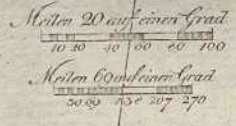 Meilen 20 auf einen Grad
10 20 40 60 80 100
Meilen 60 auf einen Grad
270